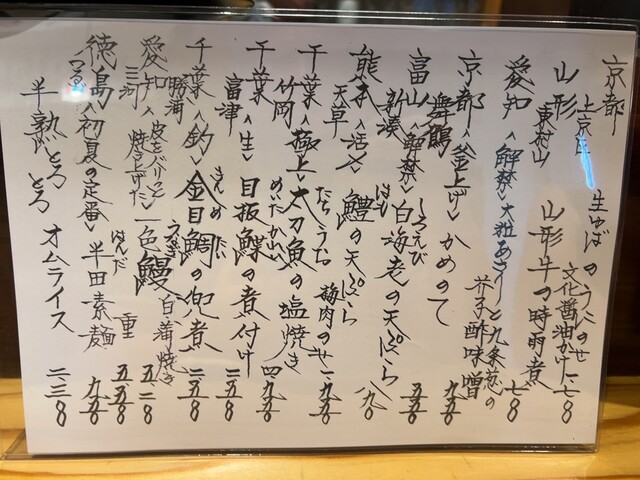 京都 上京区 生ゆばのうにのせ 文化醤油かけ 一、七八〇
山形 東村山 山形牛の時雨煮
愛知〈解禁〉大粒あさりと九条葱の芥子酢味噌 七八〇
京都 舞鶴〈釜上げ〉かめのて 九五〇
富山 新湊〈解禁〉白海老の天ぷら 五五〇
しろえび
熊本 天草〈活〆〉鱧の天ぷら 八九〇
はも
千葉 竹岡〈極上〉太刀魚の塩焼き 梅肉のせ 一、九五〇
たちうお
千葉 富津〈生〉目板鰈の煮付け 四九五〇
めいたかれい
千葉 勝浦〈釣〉金目鯛の兜煮 一三五八〇
きんめだい
愛知 三河〈皮をパリッと焼き上げた〉一色鰻 白蒲焼き 五一二八〇
うなぎ
重 五五八〇
徳島 つるぎ〈初夏の定番〉半田素麺 九五〇
はんだ
半熟とろとろオムライス 一、二三八〇